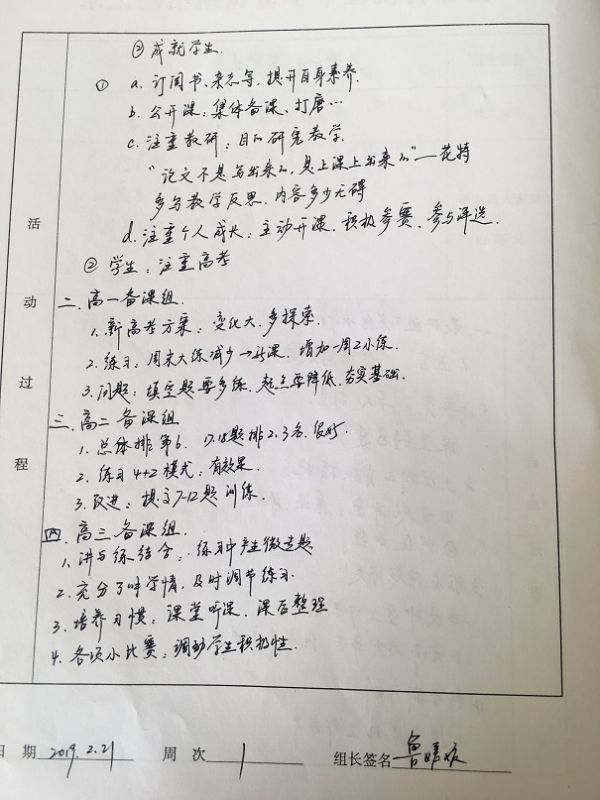 ② 成就学生.
① a. 订阅书、杂志等, 提升自身素养.
b. 公开课: 集体备课、打磨…
c. 注重教研: 目的 研究教学.
"论文不是写出来的, 是上课上出来的"—花特
多写教学反思, 内容多少无碍
d. 注重个人成长: 主动开课、积极参赛、参与评选.
② 学生: 注重高考
活动过程
二. 高一备课组.
1. 新高考方案: 变化大, 多探索.
2. 练习: 周末大练减少→新课, 增加一周2小练.
3. 问题: 填空题要多练, 起点要降低, 夯实基础.
三. 高二备课组
1. 总体排第6. 17.18题排2.3名, 很好.
2. 练习4+2模式: 有效果.
3. 改进: 提高7-12题训练.
四. 高三备课组.
1. 讲与练结合: 练习中产生微专题
2. 充分了解学情, 及时调节练习.
3. 培养习惯: 课堂听课, 课后整理
4. 各项小比赛: 调动学生积极性.
日 期 2019.2.21 周 次 1 组长签名 鲁